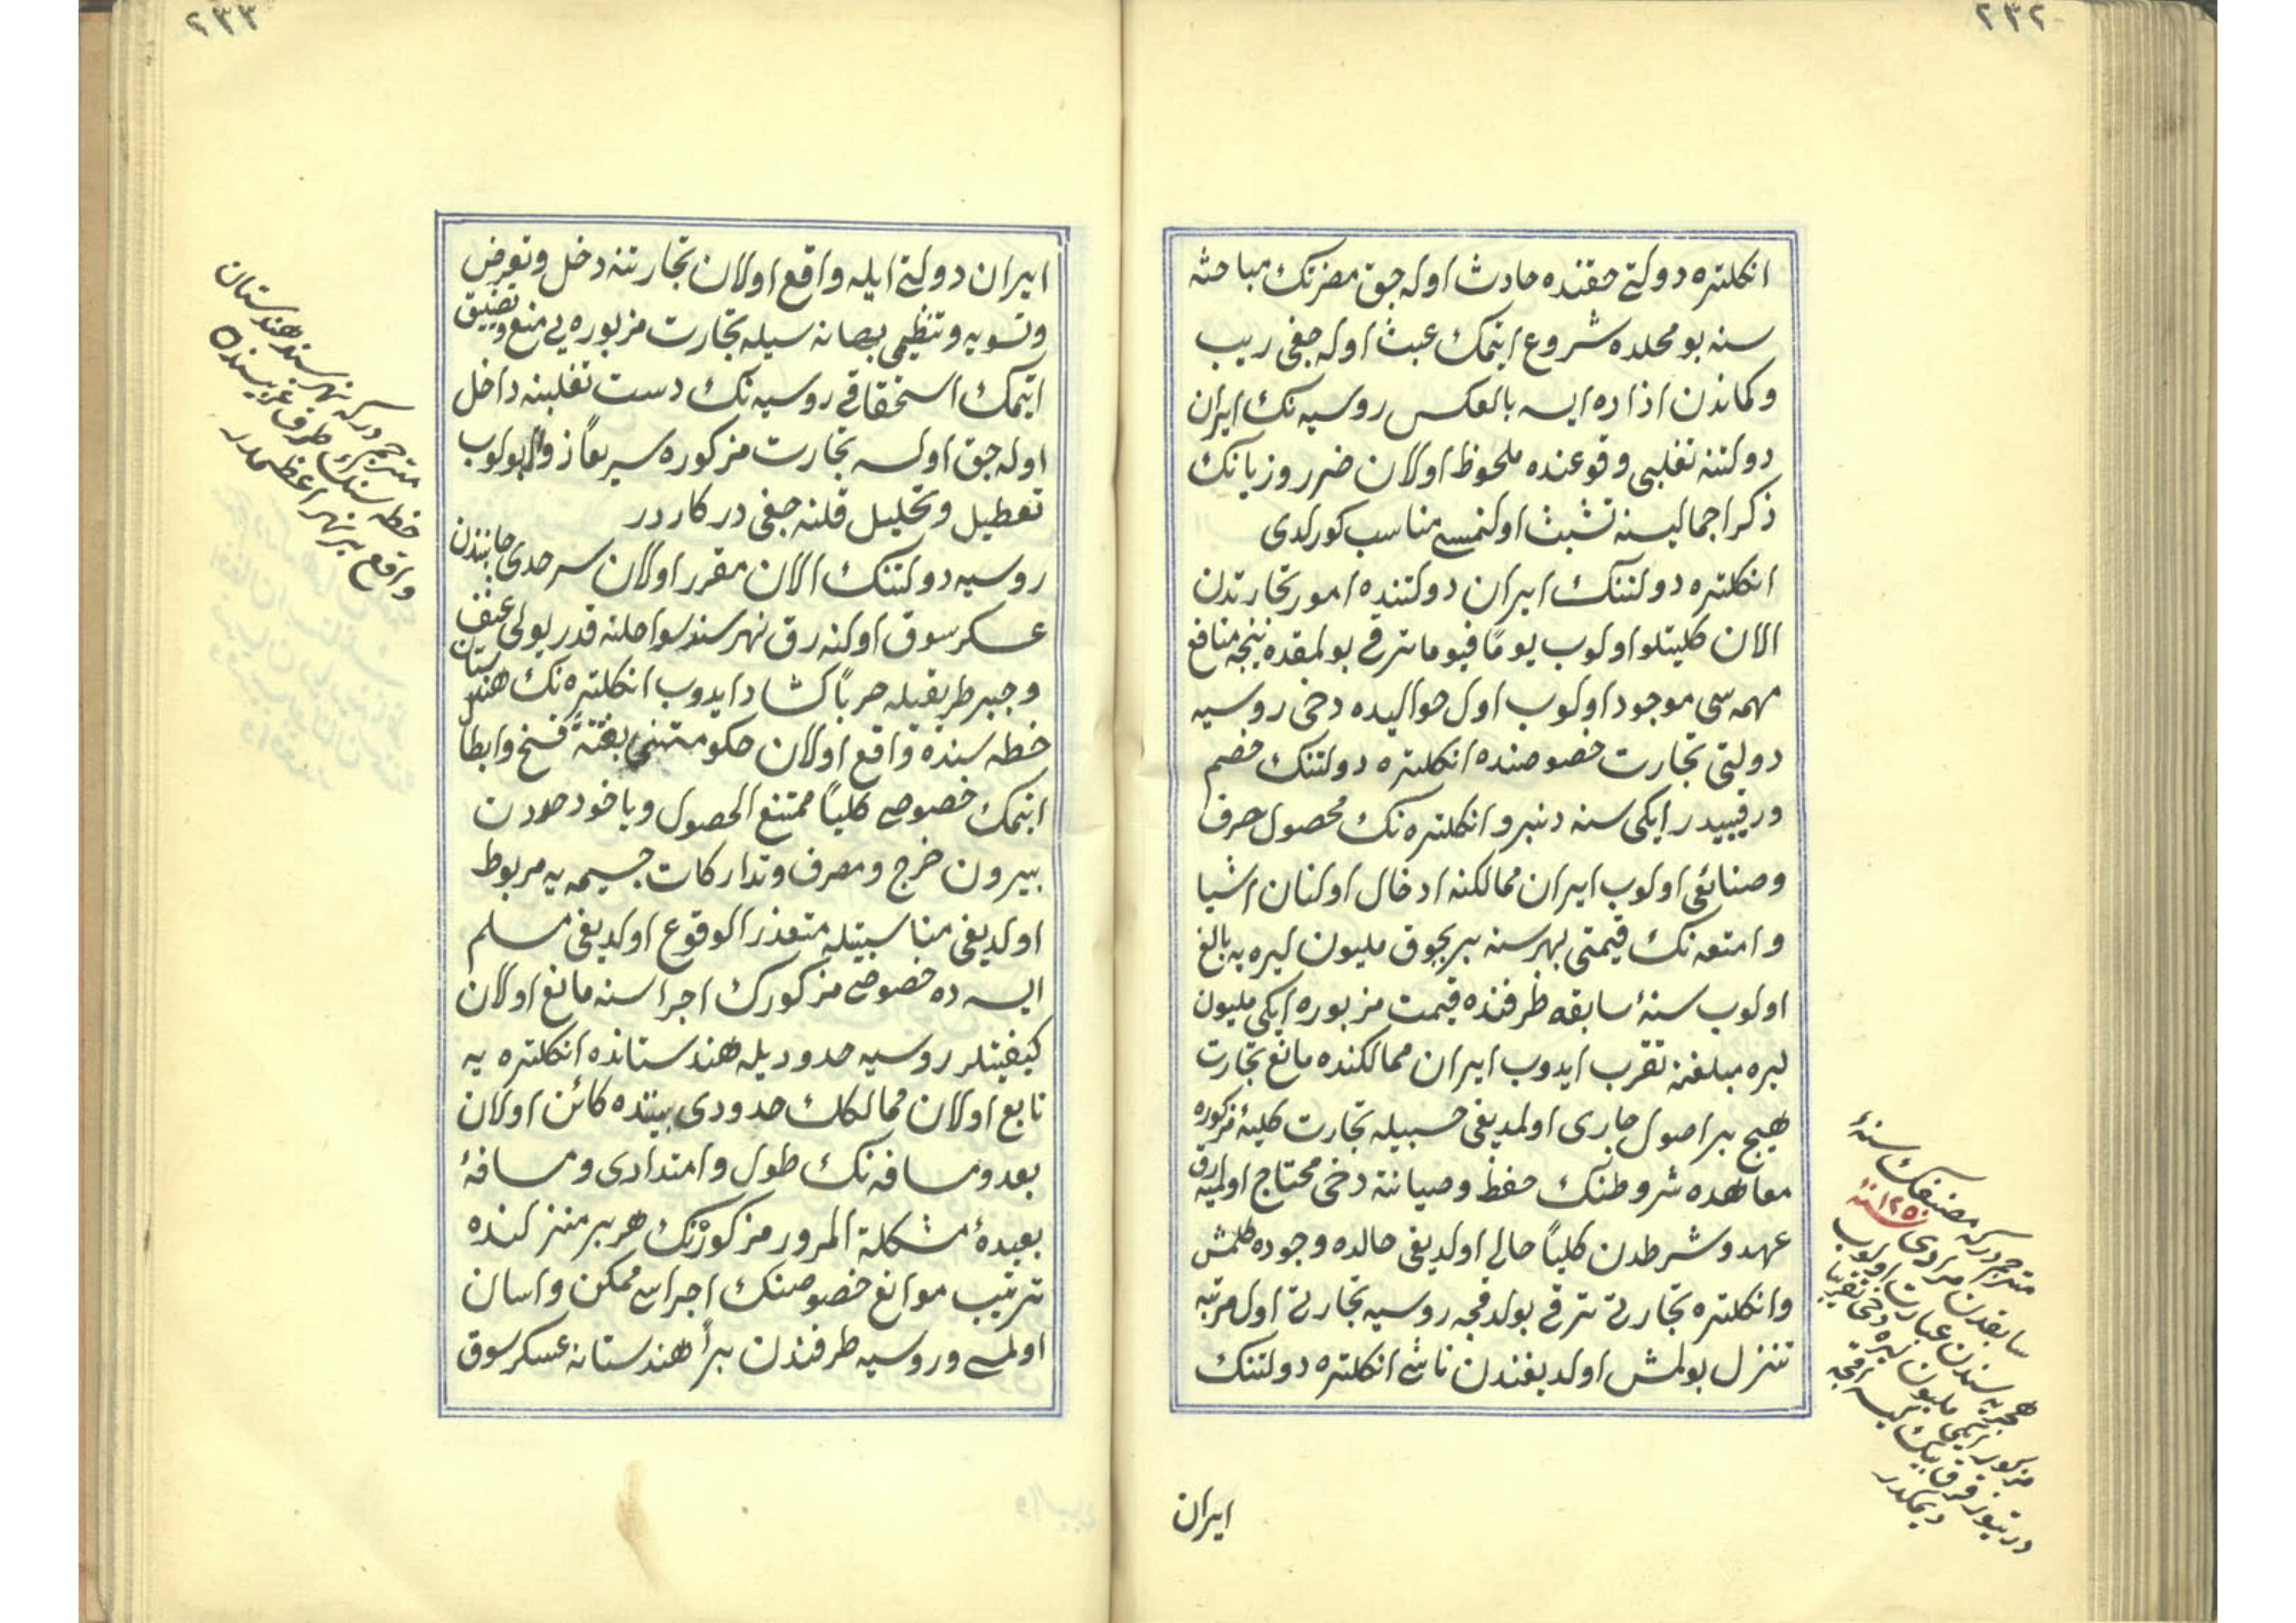 ٢٣٢
انكلتره دولتی حقنده حادث اوله جق مضرتك مباحثه
سنه بو محلده شروع ایتمك عبث اوله جغی ریب
وكماندن ازاده ایسه بالعكس روسیه نك ایران
دولتنه تغلبی وقوعنده ملحوظ اولان ضرر وزیانك
ذكر اجمالیسنه تشبث اولنمسی مناسب كورلدی
انكلتره دولتنك ایران دولتنده امور تجارتدن
الان كلیتلو اولوب یوماً فیوما ترقی بولمقده نیجه منافع
مهمه سی موجود اولوب اول حوالیده دخی روسیه
دولتی تجارت خصوصنده انكلتره دولتنك خصم
ورقیبیدر ایكی سنه دنبرو انكلتره نك محصول حرف
وصنائعی اولوب ایران ممالكنه ادخال اولنان اشیا
وامتعه نك قیمتی بهر سنه بر بچوق ملیون لیره یه بالغ
اولوب سنهٔ سابقه ظرفنده قیمت مزبوره ایكی ملیون
لیره مبلغنه تقرب ایدوب ایران ممالكنده مانع تجارت
هیچ بر اصول جاری اولمدیغی حسبیله تجارت كلیهٔ مذكوره
معاهده شروطنك حفظ وصیانته دخی محتاج اولمیه رق
عهد وشرطدن كلیاً خالی اولدیغی حالده وجوده كلمش
وانكلتره تجارتی ترقی بولدقجه روسیه تجارتی اول مرتبه
تنزل بولمش اولدیغندن ناشی انكلتره دولتنك
مترجم دركه مصنفك سنهٔ
سابقدن مرادی ١٢٥٠ سنهٔ
هجریه سندن عبارت اولوب
مزبور ایكی ملیون لیره دخی تقریبا
درتیوز قرق بیك كیسه اقچه
دیمكدر
ایران
٢٣٣
ایران دولتی ایله واقع اولان تجارتنه دخل وتعرض
وتسویه وتنظیمی بهانه سیله تجارت مزبوره یی منع وتضییق
ایتمك استحقاقی روسیه نك دست تغلبنه داخل
اوله جق اولسه تجارت مذكوره سریعاً زوال بولوب
تعطیل وتحلیل قلنه جغی دركاردر
روسیه دولتنك الان مقرر اولان سرحدی جانبندن
عسكر سوق اولنه رق نهر سند سواحلنه قدر یولی عنف
وجبر طریقیله حرباً كشاد ایدوب انكلتره نك هندستان
خطه سنده واقع اولان حكومتنی بغتةً فسخ وابطال
ایتمك خصوصی كلیاً ممتنع الحصول ویاخود حددن
بیرون خرج ومصرف وتداركات جسیمه یه مربوط
اولدیغی مناسبتیله متعذر الوقوع اولدیغی مسلم
ایسه ده خصوص مذكورك اجراسنه مانع اولان
كیفیتلر روسیه حدودیله هندستانده انكلتره یه
تابع اولان ممالكك حدودی بیننده كائن اولان
بعد ومسافه نك طول وامتدادی ومسافهٔ
بعیدهٔ مشكلة المرور مذكورنك هر بر منزلنده
ترتیب موانع خصوصنك اجراسی ممكن واسان
اولمسی وروسیه طرفندن براً هندستانه عسكر سوق
مترجم دركه نهر سند هندستان
خطه سنك طرف غربیسنده
واقع بر نهر اعظمدر